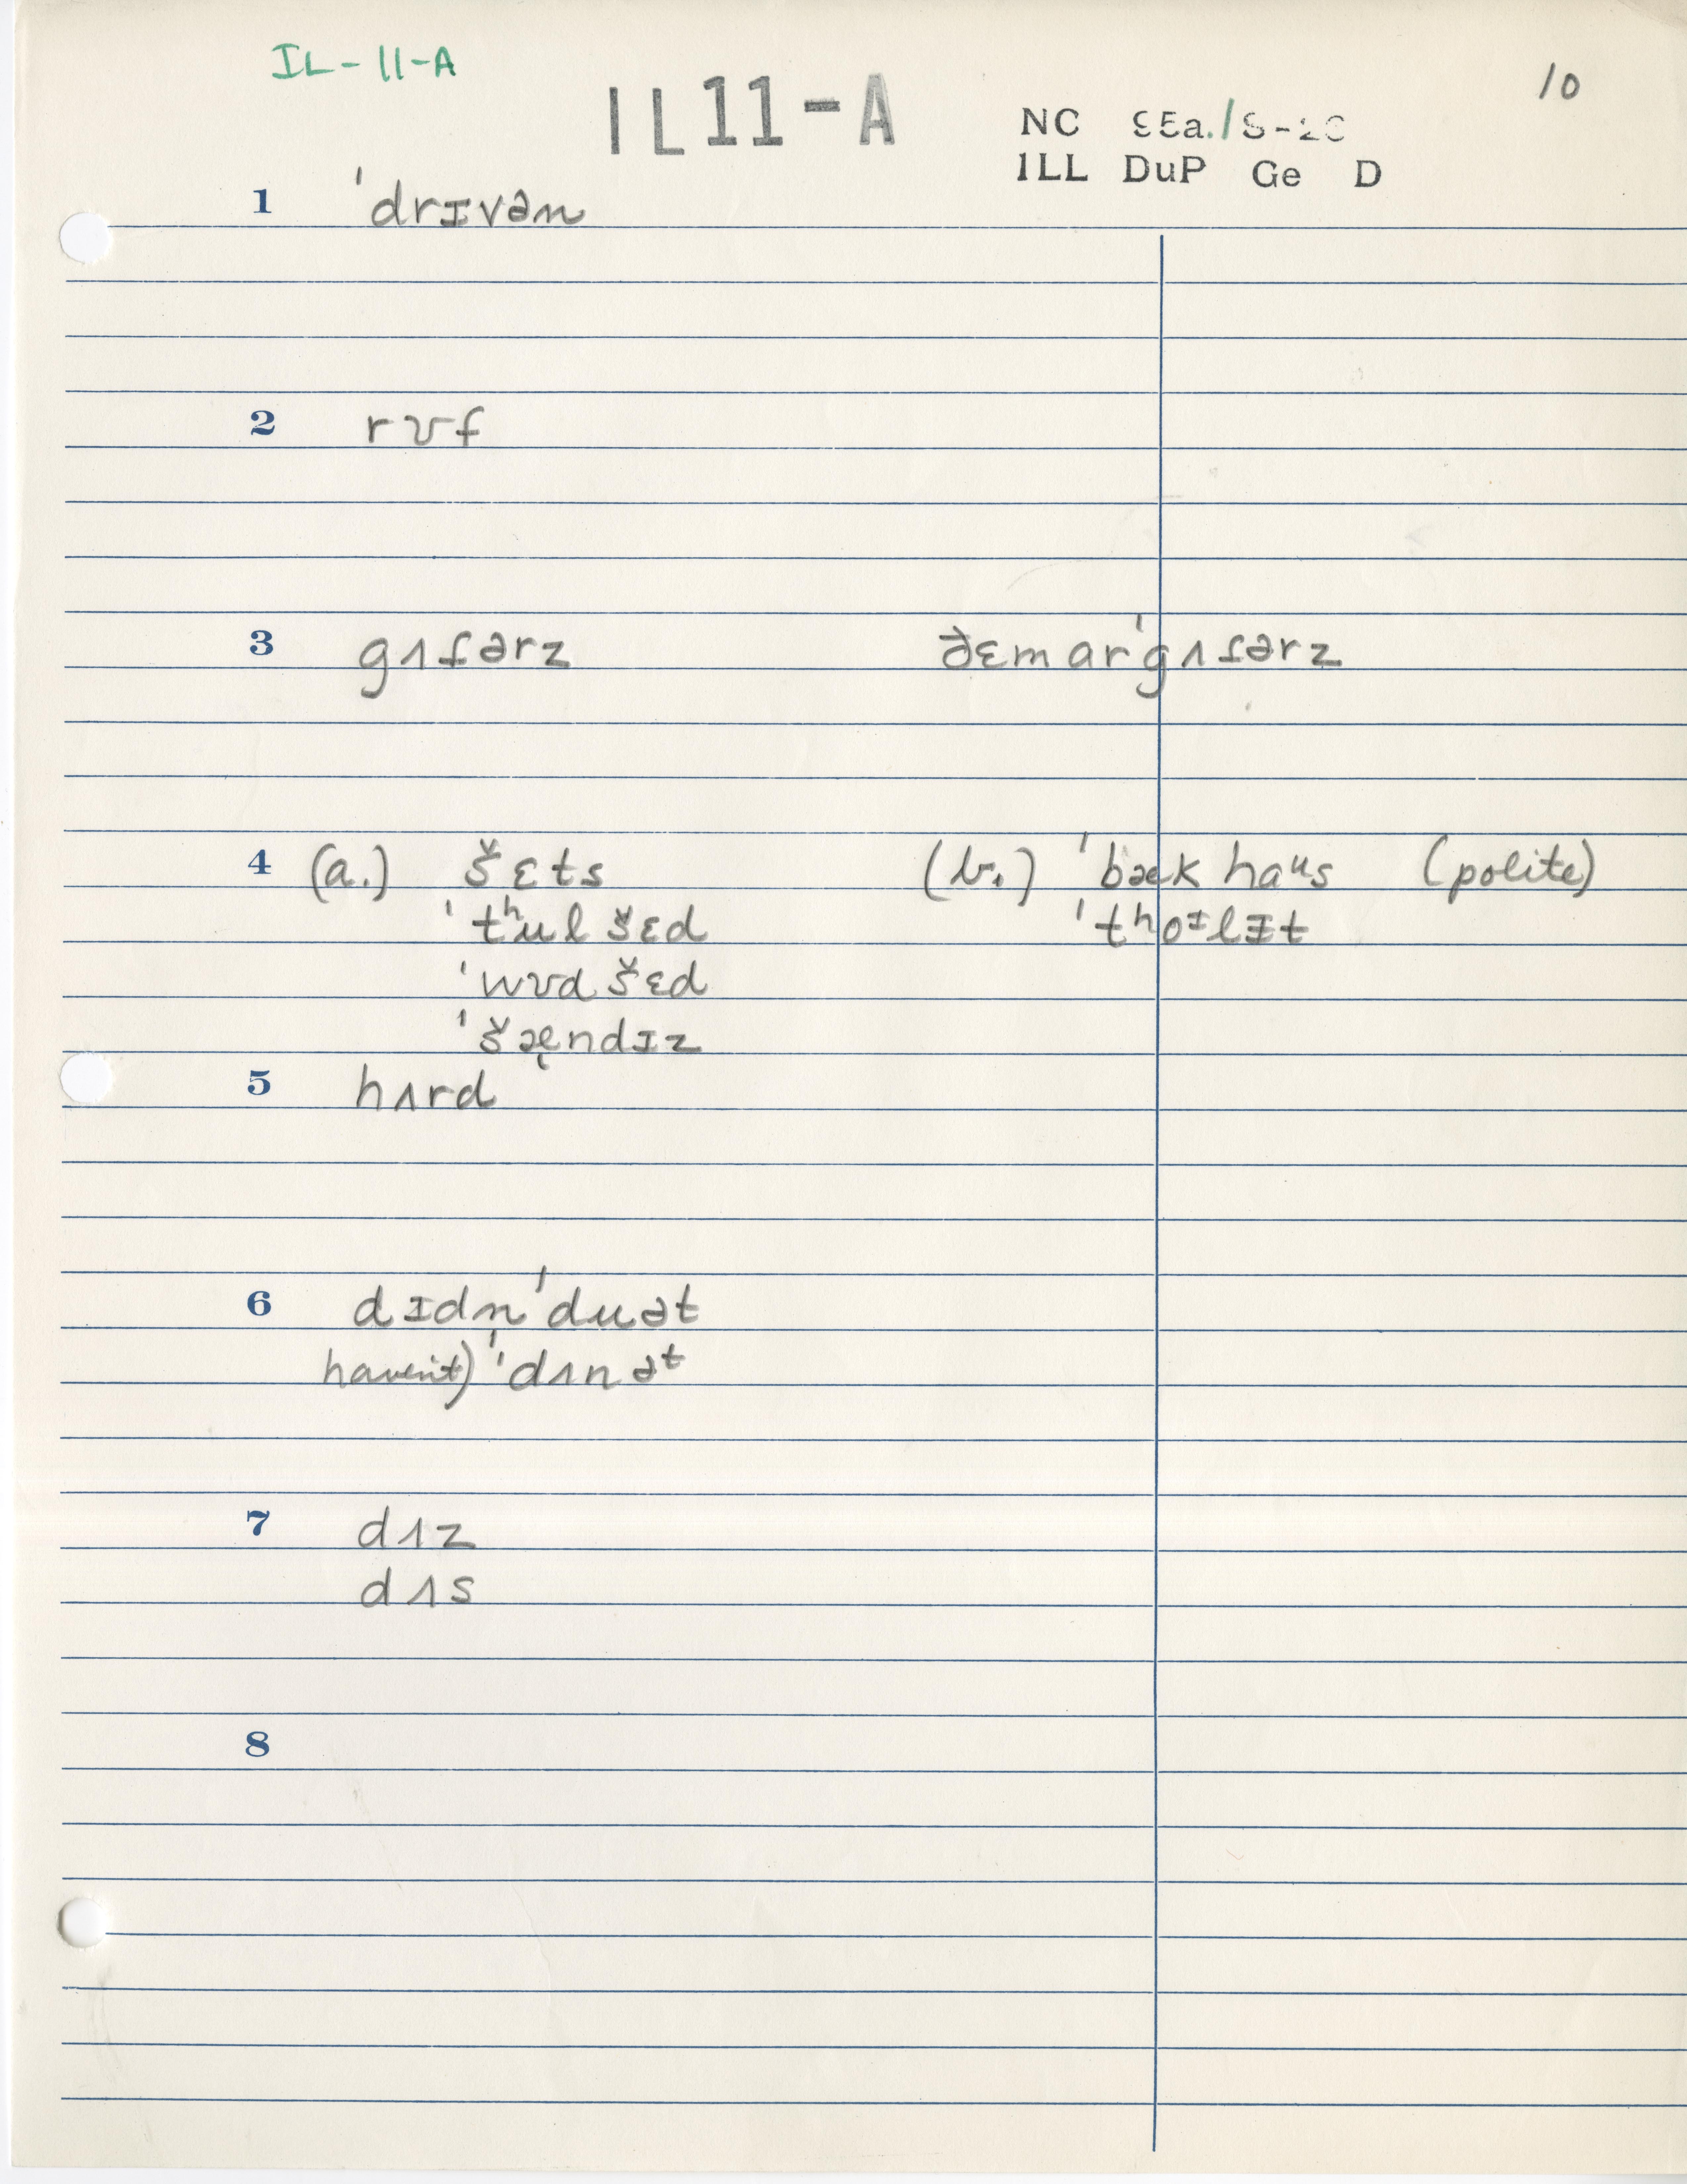 IL-11-A
IL11-A
10
NC
ILL DuP Ge D
1 ˈdrɪvən
2 rʊf
3 gʌfərz ðɛmarˈgʌfərz
4 (a.) šɛts (b.) ˈbæk haᵘs (polite)
ˈtʰul šɛd ˈtʰoᶦlɪt
ˈwʊd šɛd
ˈšæ̨ndɪz
5 hʌrd
6 dɪdn̩ˈduət
haven't) ˈdʌnəᵗ
7 dʌz
dʌs
8